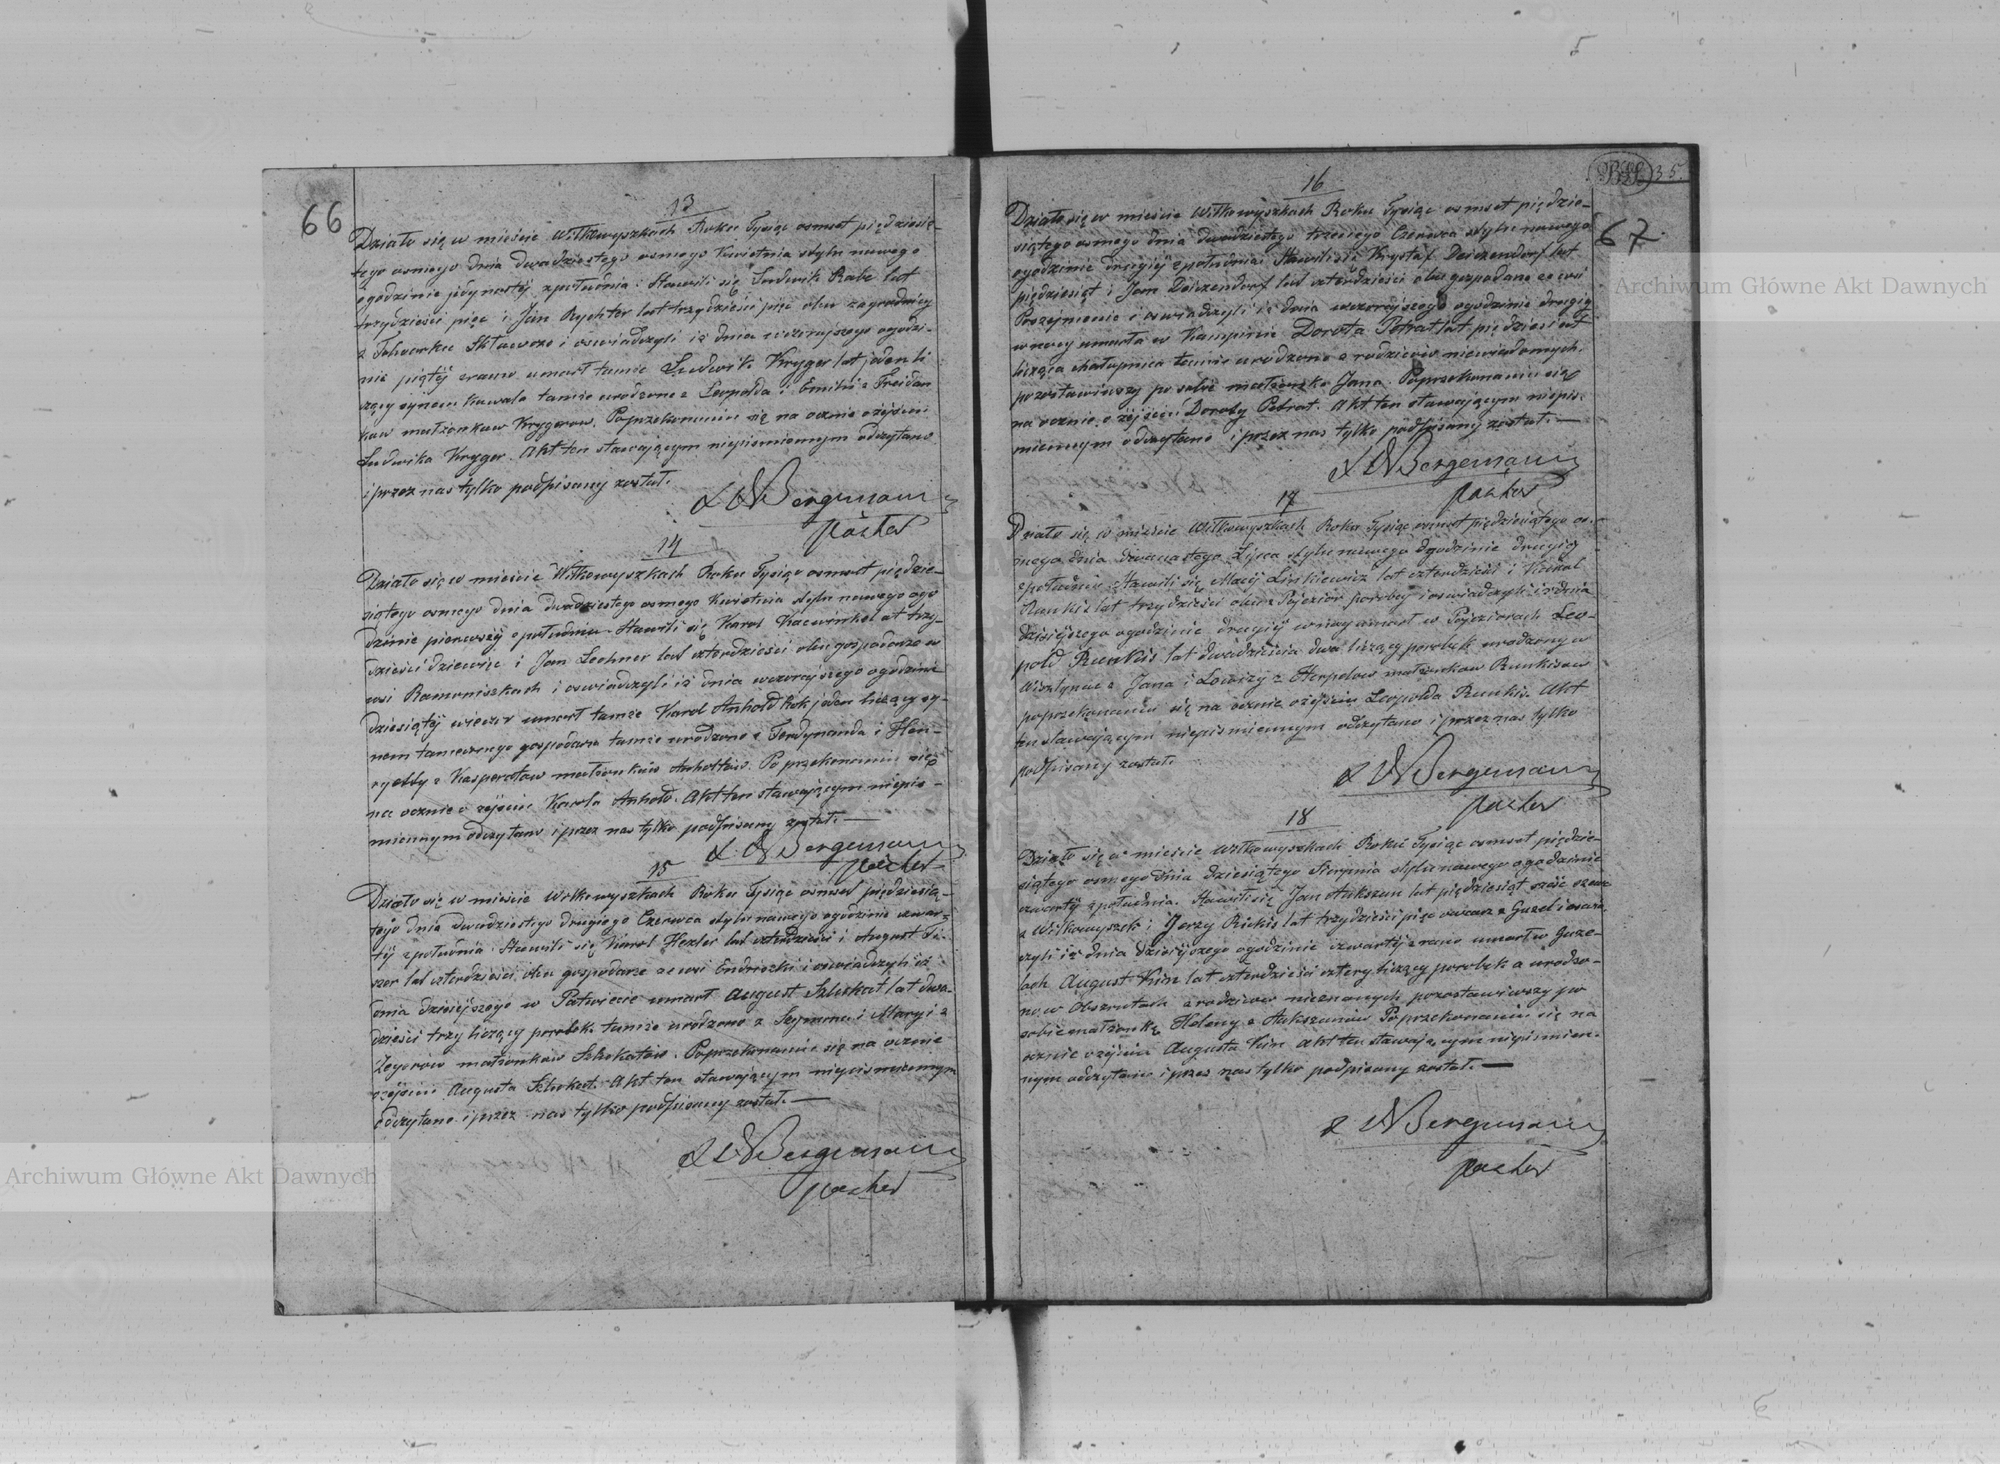 66
13
Działo się w mieście Wiłkowyszkach Roku Tysiąc osmset piędziesię-
tego osmego dnia dwudziestego osmego Kwietnia stylu nowego
o godzinie jedynastej z południa. Stawili się Ludwik Rabe lat
trzydzieści pięć i Jan Rychter lat trzydzieści pięć oba zagrodnicy
z Folwarku i oswiadczyli iż dnia wczorajszego ogodzi-
nie piątéj zrana umarł tamże Ludwik Kryger lat jeden li
czący synem kowala tamże urodzone z Leopolda i Emilii z
małżonkow Krygerow. Poprzekonaniu się na ocznie ozejściu
Ludwika Kryger. Akt ten stawającym niepismiennym odczytano
i przez nas tylko podpisany został.
Bergemann
pastor
14
Działo się w mieście Wiłkowyszkach Roku Tysiąc osmset piędzie-
siątego osmego dnia dwudziestego osmego Kwietnia stylu nowego ogo
dzinie pierwszéj z południa. Stawili się Karol lat trzy-
dzieści dziewięć i Jan Lechner lat czterdzieści oba gospodarze w
wsi Ramoniszkach i oswiadczyli iż dnia wczorajszego ogodzinie
dziesiątéj wieczor umarł tamże Karol Anhold Rok jeden liczący sy-
nem tamecznego gospodarza tamże urodzone z Ferdynanda i Hen-
ryetty z małżonkow Anholtow. Po przekonaniu się
na ocznie o zejściu Karola Anhold. Akt ten stawającym niepis-
miennym odczytano i przez nas tylko podpisany został.—
Bergemann
pastor
15
Działo się w mieście Wiłkowyszkach Roku Tysiąc osmset piędziesią-
tego dnia dwudziestego drugiego Czerwca stylu nowego ogodzinie czwar-
téj z południa. Stawili się Karol Hexler lat czterdzieści i August Fi-
szer lat czterdzieści oba gospodarze ze wsi i oswiadczyli iż
dnia dzisiéjszego w umarł August Szlekat lat dwa-
dzieści trzy liczący porobek tamże urodzone z Szymona i Maryi z
małżonkow Szlekatow. Poprzekonaniu się na ocznie
ozejściu Augusta Szlekat. Akt ten stawającym niepismiennym
odczytano i przez nas tylko podpisany został.—
Bergemann
pastor
35.
67
16
Działo się w mieście Wiłkowyszkach Roku Tysiąc osmset piędzie-
siątego osmego dnia dwudziestego trzeciego Czerwca stylu nowego
ogodzinie drugiéj z południa. Stawili się Krysztof Deiczendorf lat
piędziesiąt i Jan Deiczendorf lat czterdzieści oba gospodarze ze wsi
i oswiadczyli iż dnia wczorajszego ogodzinie drugiéj
w nocy umarła w Dorota Petrat lat piędziesiąt
licząca chałupnica tamże urodzone z rodziców niewiadomych.
pozostawiwszy po sobie małżonka Jana. Poprzekonaniu się
na ocznie o zejściu Doroty Petrat. Akt ten stawającym niepis-
miennym odczytano i przez nas tylko podpisany został.—
Bergemann
pastor
17
Działo się w mieście Wiłkowyszkach Roku Tysiąc osmset piędziesiątego os-
mego dnia dwunastego Lipca stylu nowego ogodzinie drugiéj
z południa. Stawili się Maciéj Linkiewicz lat czterdzieści i Karol
Runkis lat trzydzieści oba z Pojezior porobcy i oswiadczyli iż dnia
dzisiéjszego ogodzinie drugiéj w nocy umarł w Pojeziorach Leo-
pold Runkis lat dwadzieścia dwa liczący porobek urodzony w
Wisztyńcu z Jana i Lowizy z małżonkow Runkisow
poprzekonaniu się na ocznie ozejściu Leopolda Runkis. Akt
ten stawającym niepismiennym odczytano i przez nas tylko
podpisany został.
Bergemann
pastor
18
Działo się w mieście Wiłkowyszkach Roku Tysiąc osmset piędzie-
siątego osmego dnia dziesiątego Sierpnia stylu nowego ogodzinie
czwartéj z południa. Stawili się Jan Aukszun lat piędziesiąt sześć
z Wiłkowyszek i Jerzy Rickis lat trzydzieści pięć owczarz z Guzel i oswiad-
czyli iż dnia dzisiéjszego ogodzinie czwartéj zrana umarł w Guze-
lach August Kün lat czterdzieści cztery liczący porobek a urodzo-
no w Obszrutach z rodzicow nieznanych pozostawiwszy po
sobie małżonkę Heleny z Aukszunow. Poprzekonaniu się na
ocznie ozejściu Augusta Kün akt ten stawającym niepismien-
nym odczytano i przez nas tylko podpisany został.—
Bergemann
pastor
Archiwum Główne Akt Dawnych
Archiwum Główne Akt Dawnych